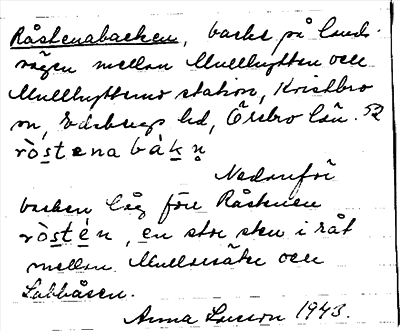 Råstenabacken, backe på lands-
vägen mellan Mullhyttan och
Mullhyttemo station, Kristbro
on, Edsbergs hd, Örebro län. 52
rò̀stenabàkn̥
Nedanför
backen låg förr Råstenen
rò̀stén, en stor sten i råt
mellan Mullersäter och
Labbåsen.
Anna Larsson 1943.